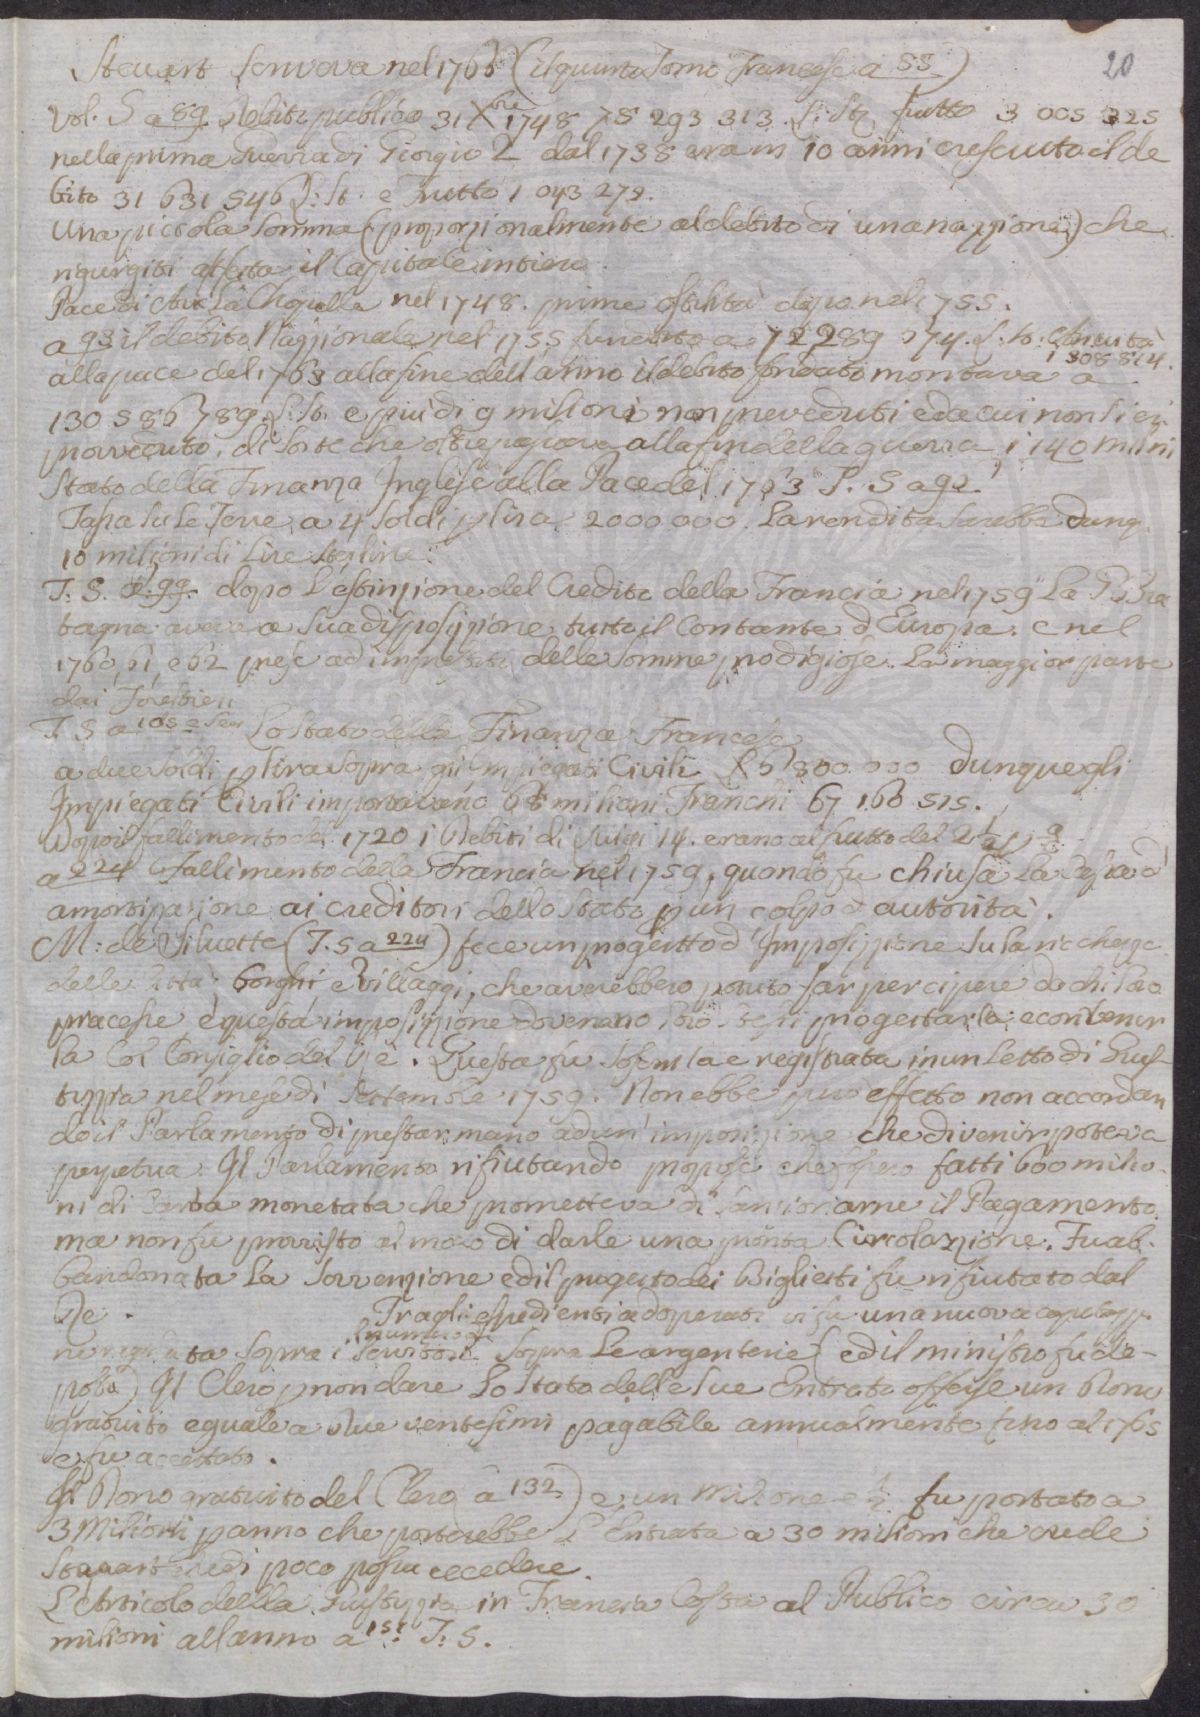 20
Steuart scriveva nel 1766 (il quinto Tomo Francese a 55)
Vol. 5 a 89 Debito publico 31 Xbre 1748 78 293 313 L: St: frutto 3 005 325
nella prima Guerra di Giorgio 2 dal 1738 era in 10 anni cresciuto il de
bito 31 631 546 L: St. e Frutto 1 043 279.
Una piccola somma (proporzionalmente al debito di una nazzione) che
rigurgiti affetta il Capitale intiero
Pace di Aix La Chapelle nel 1748. prime ostilità dopo nel 1755.
a 93 il debito Nazzionale nel 1755 fundato a 72 289 674 L: St:
1 308 814.
alla pace del 1763 alla fine dell'anno il debito fondato montava a
130 586 789 L: St. e più di 9 milioni non preveduti ed a cui non si era
proveduto, di sorte che oltrepassava alla fin della guerra i 140 milni
Stato della Finanza Inglese alla Pace del 1763 T. 5 a 92.
Tassa su le Terre a 4 soldi p lira 2000 000. La rendita sarebbe dunq
10 milioni di Lire sterline.
T. 5. a 99. dopo L'estinzione del Credito della Francia nel 1759 La G: Bre
tagna aveva a sua disposizione tutto il Contante d'Europa. e nel
1760, 61, e 62 prese ad imprestito delle somme prodigiose. La maggior parte
dai Forestieri
T. 5 a 105 Lo Stato della Finanza Francese
a due soldi p lira sopra gli Impiegati Civili 800 000 dunque gli
Impiegati Civili importavano 68 milioni Franchi 67 160 515.
Dopo il fallimento del 1720 i Debiti di Luigi 14. erano al frutto del 2 1/2 p
a 224 Fallimento della Francia nel 1759, quando fu chiusa La Cassa d'
amortizazione ai creditori dello Stato p un colpo d'autorità.
M: de Siluette (T. 5 a 224) fece un progetto d'Imposizzione su la ricchezza
delle Città, Borghi e Villaggi, che averebbero potuto far percipere da chi loro
piacesse e questa imposizzione dovevano loro stessi progettarla e convenir
la col Consiglio del Rè. Questa fu sosenuta e registrata in un Letto di Gius
tizzia nel mese di Settembre 1759. Non ebbe però effetto non accordan
do il Parlamento di prestar mano ad un' imposizione che divenir poteva
perpetua. Il Parlamento rifiutando propose che fossero fatti 600 milio
ni di Carta monetata che prometteva di sanzionarne il Pagamento
ma non fu provisto al modo di darle una pronta Circolazzione. Fu ab
bandonata La Sovvenzione ed il progetto dei Biglietti fu rifiutato dal
Re. Fra gli espedienti adoperati vi fu una nuova capitazzio
ne sopra i servitori sopra Le argenterie (ed il ministro fu de-
posto) Il Clero p non dare Lo Stato delle sue Entrate offerse un Dono
gratuito eguale a due ventesimi pagabile annualmente fino al 1765
e fu accettato.
Il Dono gratuito del Clero (a 132) e un Milione e 1/2 fu portato a
3 Milioni p anno che porterebbe L'Entrata a 30 milioni che crede
Steuart di poco possa eccedere.
L'Articolo della Giustizzia in Francia Costa al Publico circa 30
milioni all'anno a 152 T: 5.